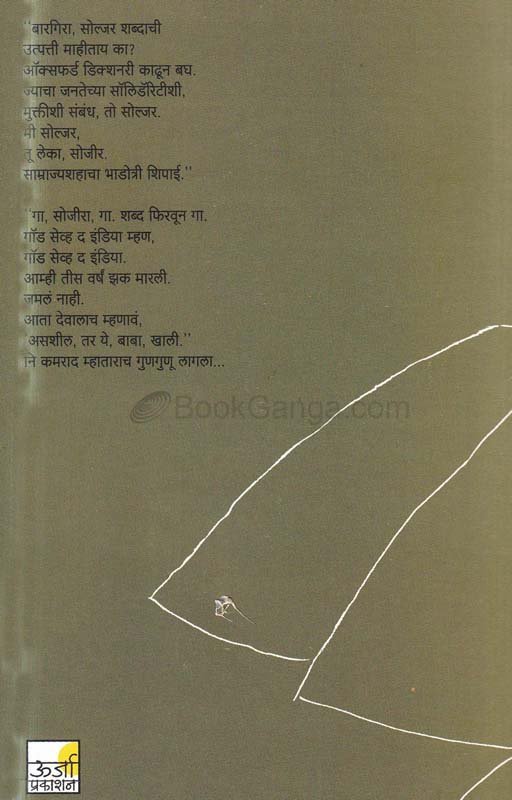 "बारगिरा, सोल्जर शब्दाची
उत्पत्ती माहीताय का?
ऑक्सफर्ड डिक्शनरी काढून बघ.
ज्याचा जनतेच्या सॉलिडॅरिटीशी,
मुक्तीशी संबंध, तो सोल्जर.
मी सोल्जर,
तू लेका, सोजीर.
साम्राज्यशहाचा भाडोत्री शिपाई."
"गा, सोजीरा, गा. शब्द फिरवून गा.
गॉड सेव्ह द इंडिया म्हण,
गॉड सेव्ह द इंडिया.
आम्ही तीस वर्षं झक मारली.
जमलं नाही.
आता देवालाच म्हणावं,
असशील, तर ये, बाबा, खाली."
नि कमराद म्हाताराच गुणगुणू लागला...
BookGanga.com
ऊर्जा
प्रकाशन